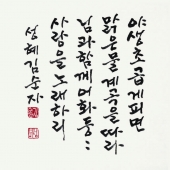 야생초 곱게 피면
맑은 물 계곡을 따라
님과 함께 어화둥::
사랑을 노래하리
성헤 김순자